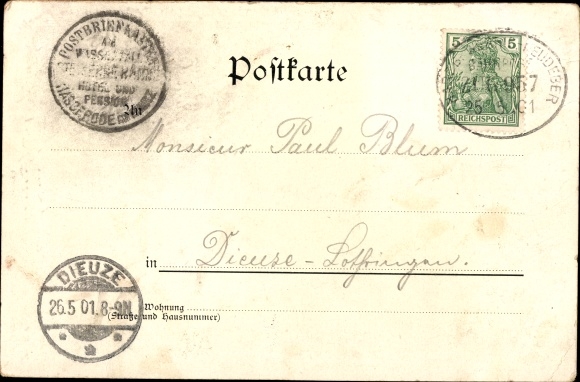 POSTBRIEFKASTEN
HOTEL UND
PENSION
HASSERODE
Postkarte
5 5
REICHSPOST
25
An
Monsieur Paul Blum
in Dieuze - Lothringen.
DIEUZE
26.5 01.8-9N
Wohnung
(Straße und Hausnummer)